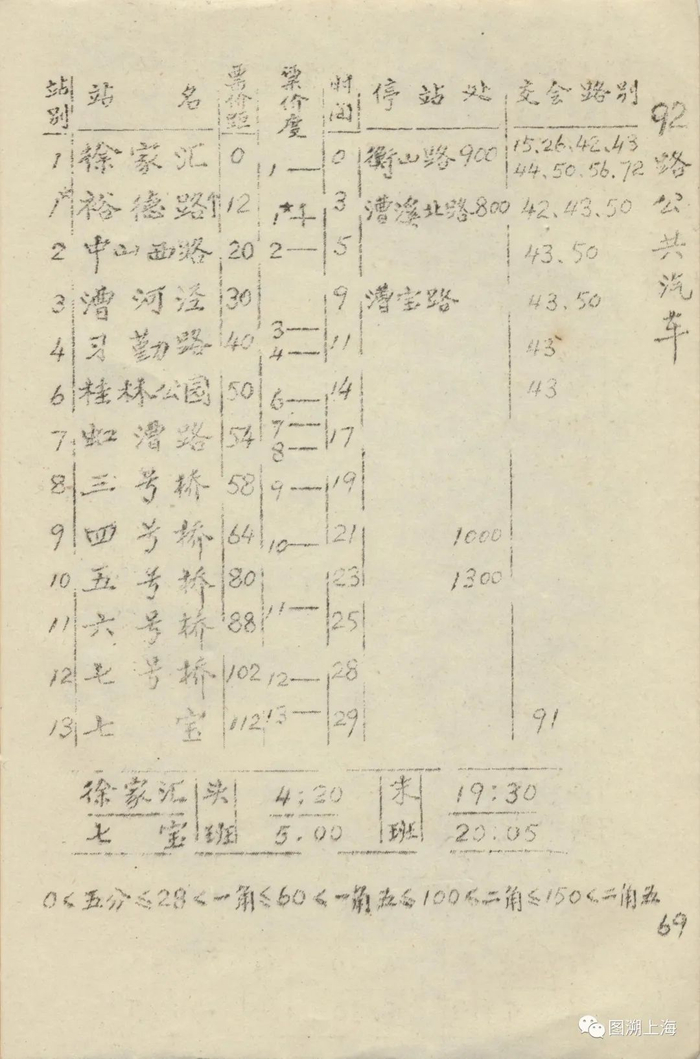 92路公共汽车
站别 站名 票价距 票价度 时间 停站处 交会路别
1 徐家汇 0 1— 0 衡山路900 15.26.42.43 44.50.56.72
1 裕德路 12 3 漕溪北路800 42.43.50
2 中山西路 20 2— 5 43.50
3 漕河泾 30 9 漕宝路 43.50
4 习勤路 40 3— 4— 11 43
6 桂林公园 50 6— 14 43
7 虹漕路 54 7— 8— 17
8 三号桥 58 9— 19
9 四号桥 64 10— 21 1000
10 五号桥 80 23 1300
11 六号桥 88 11— 25
12 七号桥 102 12— 28
13 七宝 112 13— 29 91
徐家汇 头班 4:20 末班 19:30
七宝 5.00 20:05
0<五分≤28<一角≤60<一角五≤100≤二角≤150<二角五
69
图溯上海